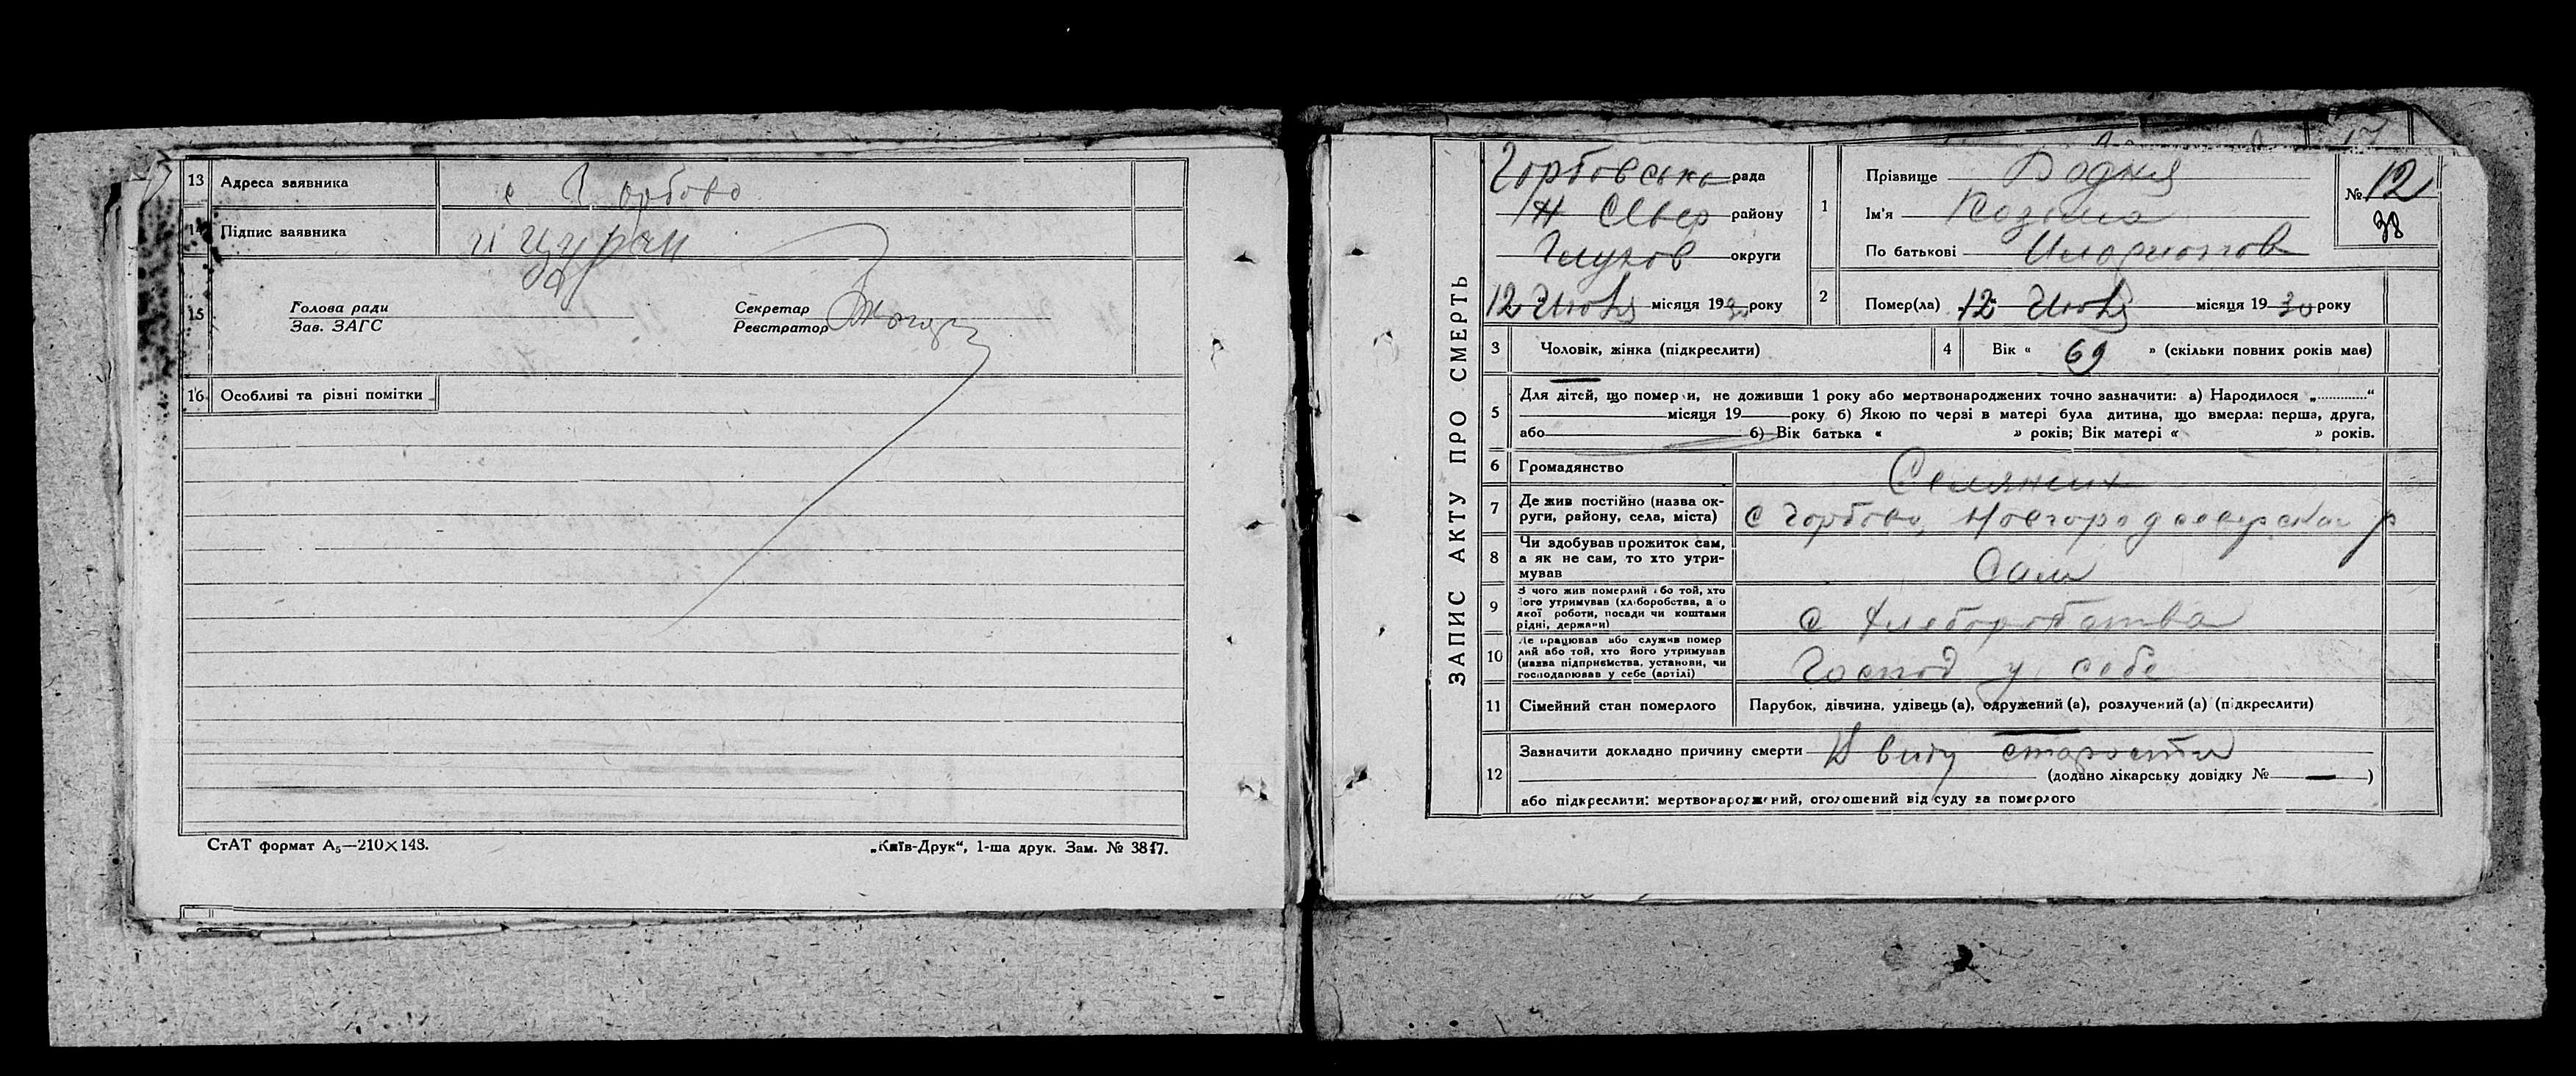 13 Адреса заявника с Горбово
14 Підпис заявника
15 Голова ради
Зав. ЗАГС
Секретар
Реєстратор
16 Особливі та різні помітки
СтАТ формат А5—210×148.
„Київ-Друк“, 1-ша друк. Зам. № 3847.
ЗАПИС АКТУ ПРО СМЕРТЬ
Горбовсько рада
Н Север району
Глухов округи
12 Июня місяця 1930 року
1 Прізвище Водня
Ім'я Козьма
По батькові Иларионов
№ 12
38
2 Помер(ла) „12“ Июня місяця 1930 року
3 Чоловік, жінка (підкреслити)
4 Вік « 69 » (скільки повних років мав)
5 Для дітей, що померли, не доживши 1 року або мертвонароджених точно зазначити: а) Народилося „............“
місяця 19 року б) Якою по черзі в матері була дитина, що вмерла: перша, друга,
або б) Вік батька « » років; Вік матері « » років.
6 Громадянство Селянин
7 Де жив постійно (назва ок-
руги, району, села, міста) с Горбово, Новгородсеверской р
8 Чи здобував прожиток сам,
а як не сам, то хто утри-
мував Сам
9 З чого жив померлий або той, хто
його утримував (хліборобства, а о
якої роботи, посади чи коштами
рідні, держави) с Хлеборобства
10 Де працював або служив помер
лий або той, хто його утримував
(назва підприємства, установи, чи
господарював у себе (артілі) Господ у себе
11 Сімейний стан померлого Парубок, дівчина, удівець (а), одружений (а), розлучений (а) (підкреслити)
12 Зазначити докладно причину смерти В виду старости
(додано лікарську довідку № — )
або підкреслити: мертвонароджений, оголошений від суду за померлого